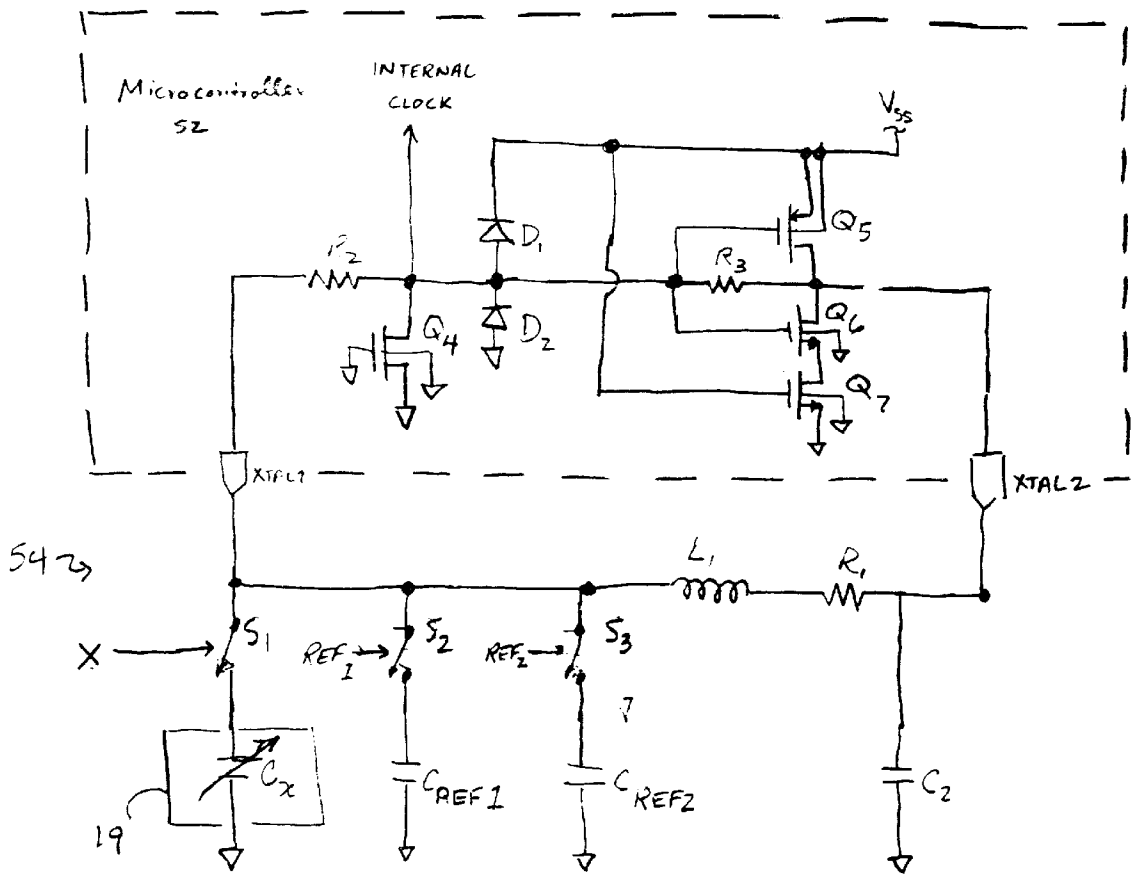 Microcontroller
52
INTERNAL
CLOCK
V_SS
R_2
D_1
Q_5
R_3
Q_4
D_2
Q_6
Q_7
XTAL1
XTAL2
54
L_1
R_1
X
S_1
REF_1
S_2
REF_2
S_3
C_x
C_REF1
C_REF2
C_2
19